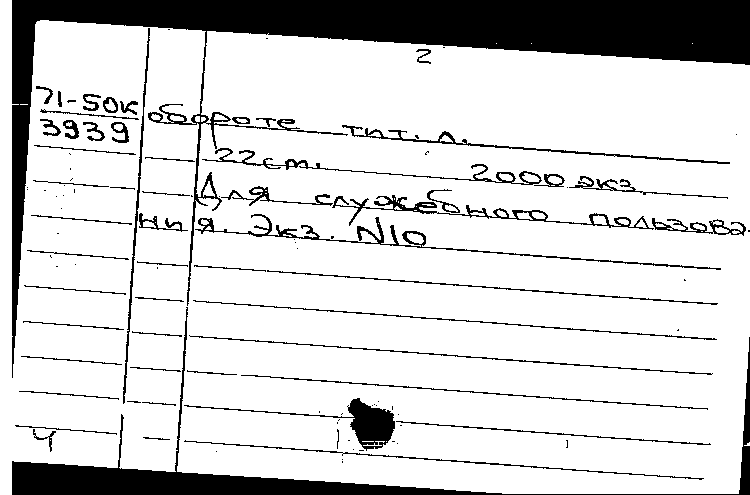 2
71-50к обороте тит. л.
3939
22см. 2000 экз.
Для служебного пользова-
ния. Экз. N10
Ч